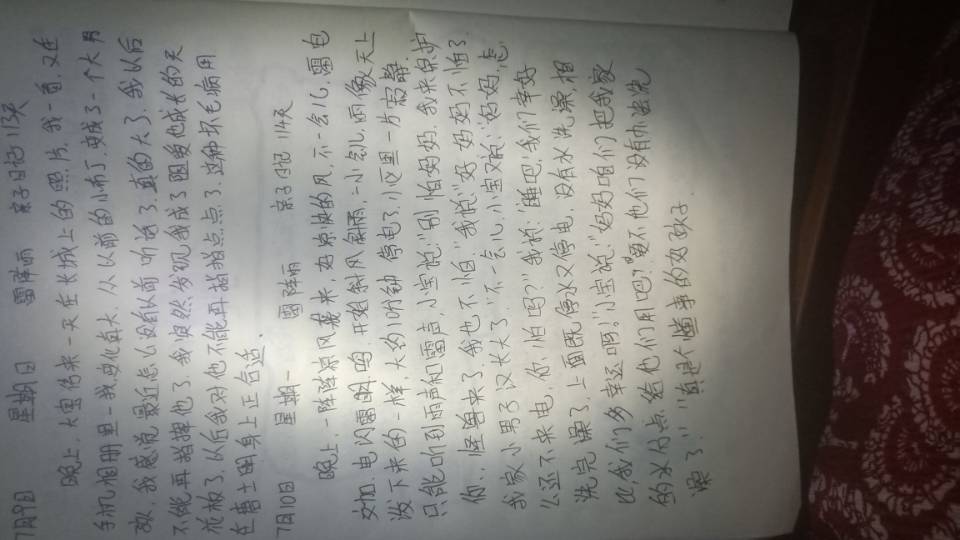 7月9日 星期日 雷阵雨 亲子日记113天
晚上,大宝传来一天在长城上的照片,我一看,又在
手机相册里一找,变化真大,从以前的小布丁变成了一个大男
孩,我感觉最近怎么没以前听话了,真的大了,我以后
不能再指挥他了,我突然发现我成了阻要他成长的天
花板了,以后我对他不能再指指点点了,这种坏毛病用
在曹士明身上正合适。
7月10日 星期一 雷阵雨 亲子日记114天
晚上,一阵阵凉风袭来,好凉快的风,不一会儿,雷电
交加,电闪雷鸣,开始斜风斜雨,一小会儿,雨像天上
泼下来的一样,大约1小时停电了,小区里一片寂静.
只能听到雨声和雷声,小宝说:"别怕妈妈,我来保护
你,怪兽来了,我也不怕"我说:"好,妈妈不怕了
我家小男子汉长大了"不一会儿,小宝又说:"妈妈,怎
么还不来电,你怕吗?"我说:"睡吧,我们幸好
洗完澡了,上面既停水又停电,没有水洗澡,相
比,我们多幸运啊!"小宝说:"妈妈咱们把我家
的水分点给他们用吧?要不他们没有办法洗
澡了""真是个懂事的好孩子.